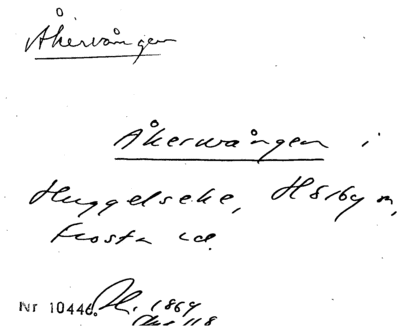 Åkervången
Åkerwången i
Huggelseke, Hörby sn,
Frosta hd.
Nr 10446. 1864
118